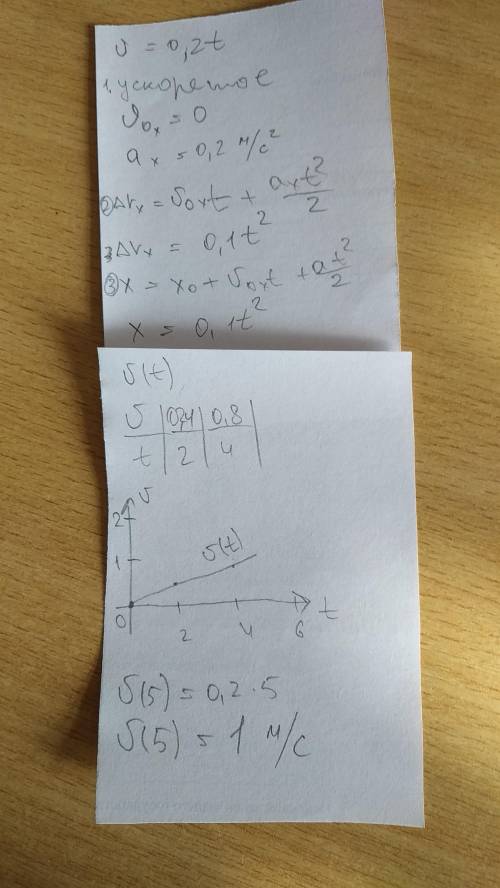 υ = 0,2t
1. ускоретое
υ₀ₓ = 0
aₓ = 0,2 м/с²
② Δrₓ = υ₀ₓt + aₓt²/2
3 Δrₓ = 0,1t²
③ x = x₀ + υ₀ₓt + at²/2
x = 0,1t²
υ(t)
υ | 0,4 | 0,8
t | 2 | 4
υ
2
1
υ(t)
0 2 4 6 t
υ(5) = 0,2·5
υ(5) = 1 м/с